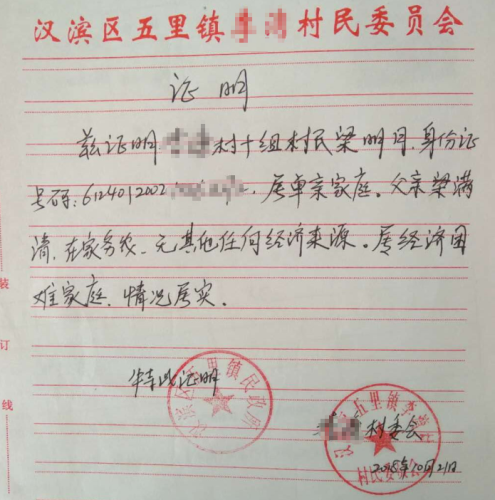 汉滨区五里镇 村民委员会
证明
兹证明 村十组村民梁明月,身份证
号码:6124012002 ,属单亲家庭。父亲梁满
清,在家务农,无其他任何经济来源。属经济困
难家庭,情况属实。
特此证明
汉滨区五里镇民政所
村委会
五里镇
村民委员会
2018年10月21日
装
订
线